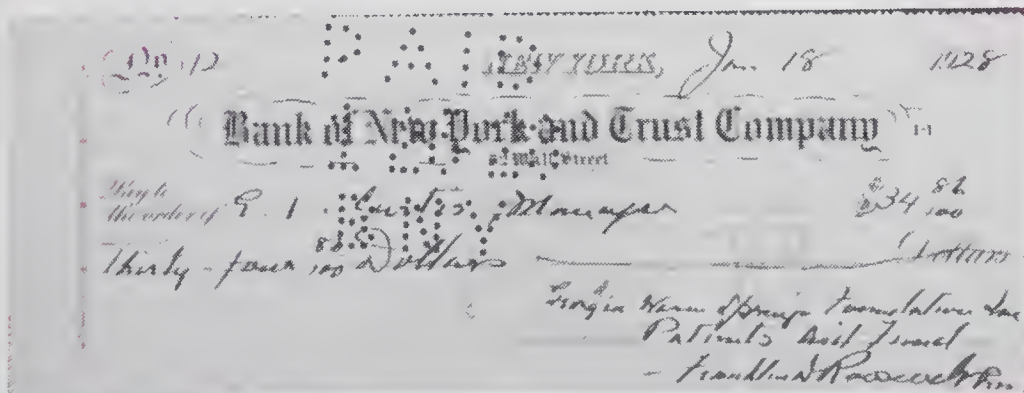 PAID
NEW YORK, Jan. 18 1928
Bank of New York and Trust Company
Wall Street
Pay to
the order of E. I. Curtis, Manager $34 82/100
Thirty-four 82/100 Dollars Dollars
Georgia Warm Springs Foundation Inc
Patients Aid Fund
Franklin D Roosevelt Pres